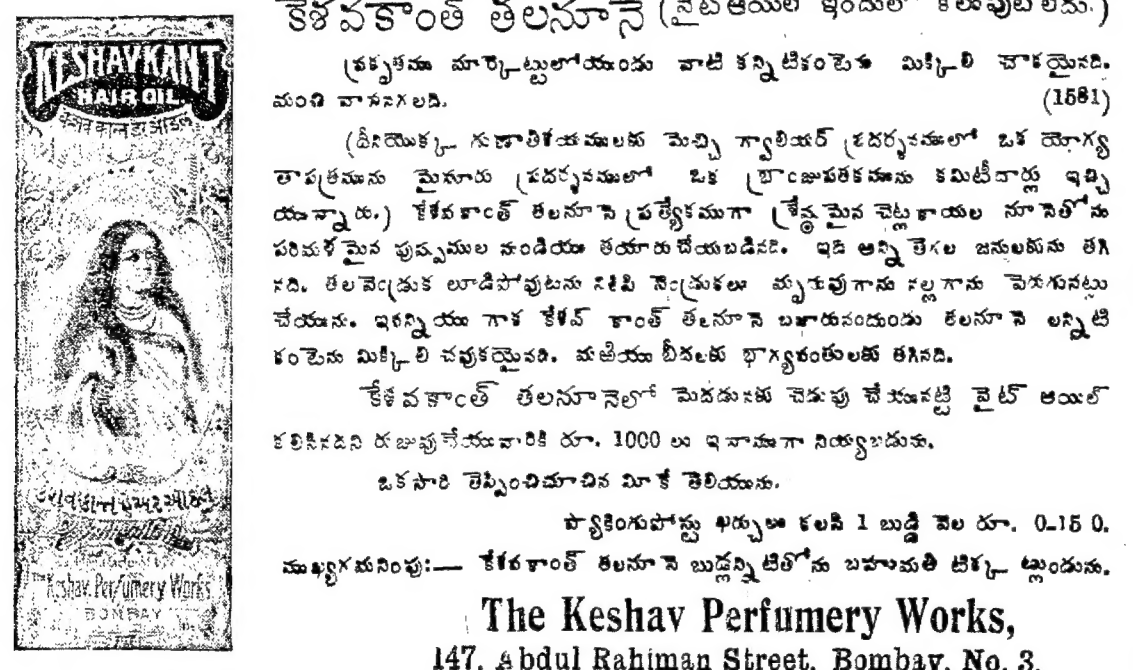 KESHAVKANT
HAIR OIL
కేశవకాంత్ తలనూనె (వైట్ ఆయిల్ ఇందులో కలుపుట లేదు.)
ప్రకృతము మార్కెట్టులోయుండు వాటి కన్నిటికంటెను మిక్కిలి చౌకయైనది.
మంచి వాసనగలది. (1581)
(దీనియొక్క గుణాతిశయములకు మెచ్చి గ్వాలియర్ ప్రదర్శనములో ఒక యోగ్య
తాపత్రమును మైసూరు ప్రదర్శనములో ఒక బ్రాంజుపతకమును కమిటీవార్లు ఇచ్చి
యున్నారు.) కేశవకాంత్ తలనూనె ప్రత్యేకముగా శ్రేష్ఠమైన చెట్ల కాయల నూనెతోను
పరిమళమైన పుష్పముల నుండియు తయారుచేయబడినది. ఇది అన్ని తెగల జనులకును తగి
నది. తలవెంట్రుక లూడిపోవుటను నిలిపి వెంట్రుకలు మృదువుగాను నల్లగాను పెరుగునట్లు
చేయును. ఇవన్నియు గాక కేశవ్ కాంత్ తలనూనె బజారునందుండు తలనూనె లన్నిటి
కంటెను మిక్కిలి చవుకయైనది. మఱియు బీదలకు భాగ్యవంతులకు తగినది.
కేశవకాంత్ తలనూనెలో మెదడునకు చెరుపు చేయునట్టి వైట్ ఆయిల్
కలిసినదని రుజువుచేయువారికి రూ. 1000 లు ఇనాముగా నియ్యబడును.
ఒకసారి తెప్పించిచూచిన మీకే తెలియును.
ప్యాకింగుపోస్టు ఖర్చులు కలసి 1 బుడ్డి వెల రూ. 0-15 0.
ముఖ్యగమనింపు:— కేశవకాంత్ తలనూనె బుడ్లన్నిటితోను బహుమతి టిక్కట్లుండును.
Keshav Perfumery Works
BOMBAY
The Keshav Perfumery Works,
147, Abdul Rahiman Street, Bombay, No. 3.